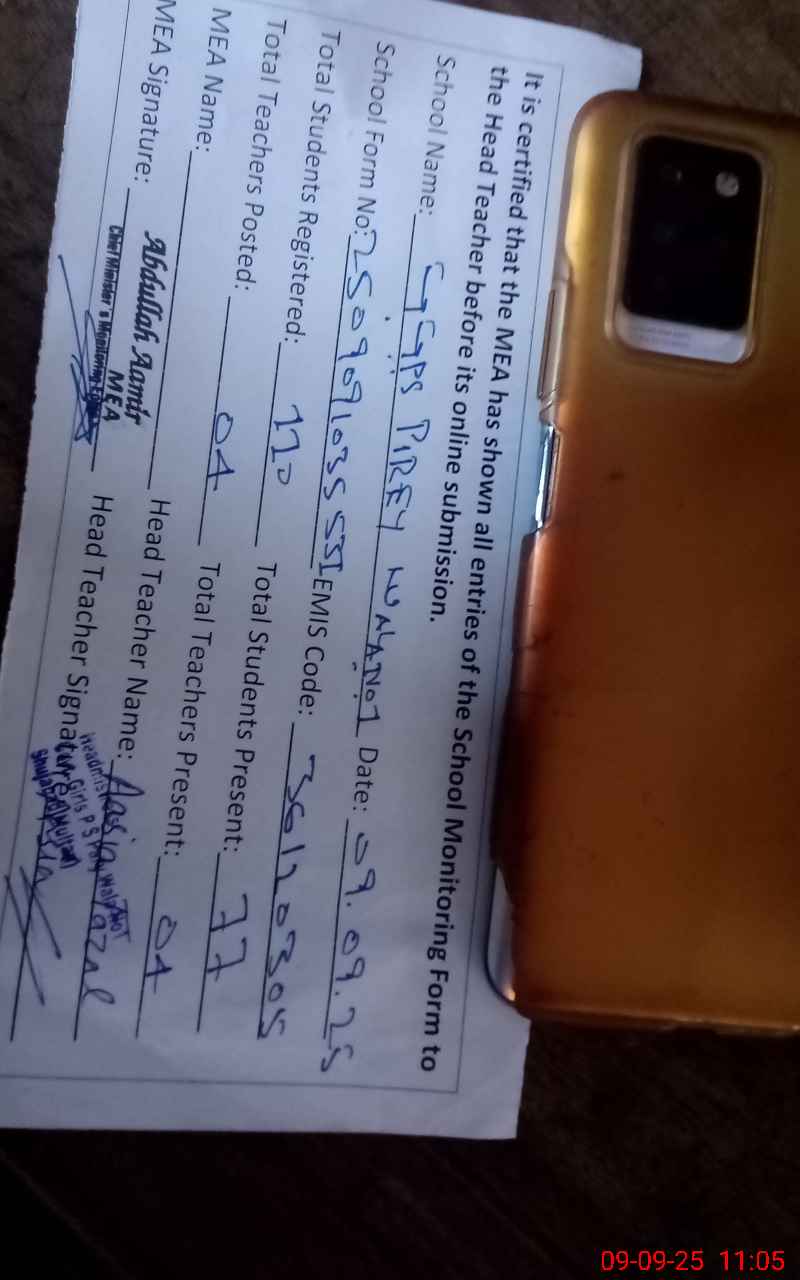 It is certified that the MEA has shown all entries of the School Monitoring Form to
the Head Teacher before its online submission.
School Name: GGPS PIREY WALA No1 Date: 09.09.25
School Form No: 2509091035531 EMIS Code: 36120305
Total Students Registered: 110 Total Students Present: 77
Total Teachers Posted: 04 Total Teachers Present: 04
MEA Name: Abdullah Aamir Head Teacher Name: Aasia Fazal
MEA
Chief Minister's Monitoring
MEA Signature: Head Teacher Signature:
09-09-25 11:05